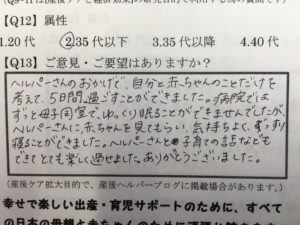 【Q12】属性
1.20代 ②35代以下 3.35代以降 4.40代
【Q13】ご意見・ご要望はありますか？
ヘルパーさんのおかげで、自分と赤ちゃんのことだけを
考えて、5日間過ごすことができました。病院では
ずっと母子同室で、ゆっくり眠ることができませんでしたが、
ヘルパーさんに赤ちゃんを見てもらい、気持ちよく、ぐっすり
寝ることができました。ヘルパーさんと子育ての話なども
できてとても楽しく過せました。ありがとうございました。
（産後ケア拡大目的で、産後ヘルパーブログに掲載場合があります。）
幸せで楽しい出産・育児サポートのために、すべて
の日本の母親と赤ちゃんのために